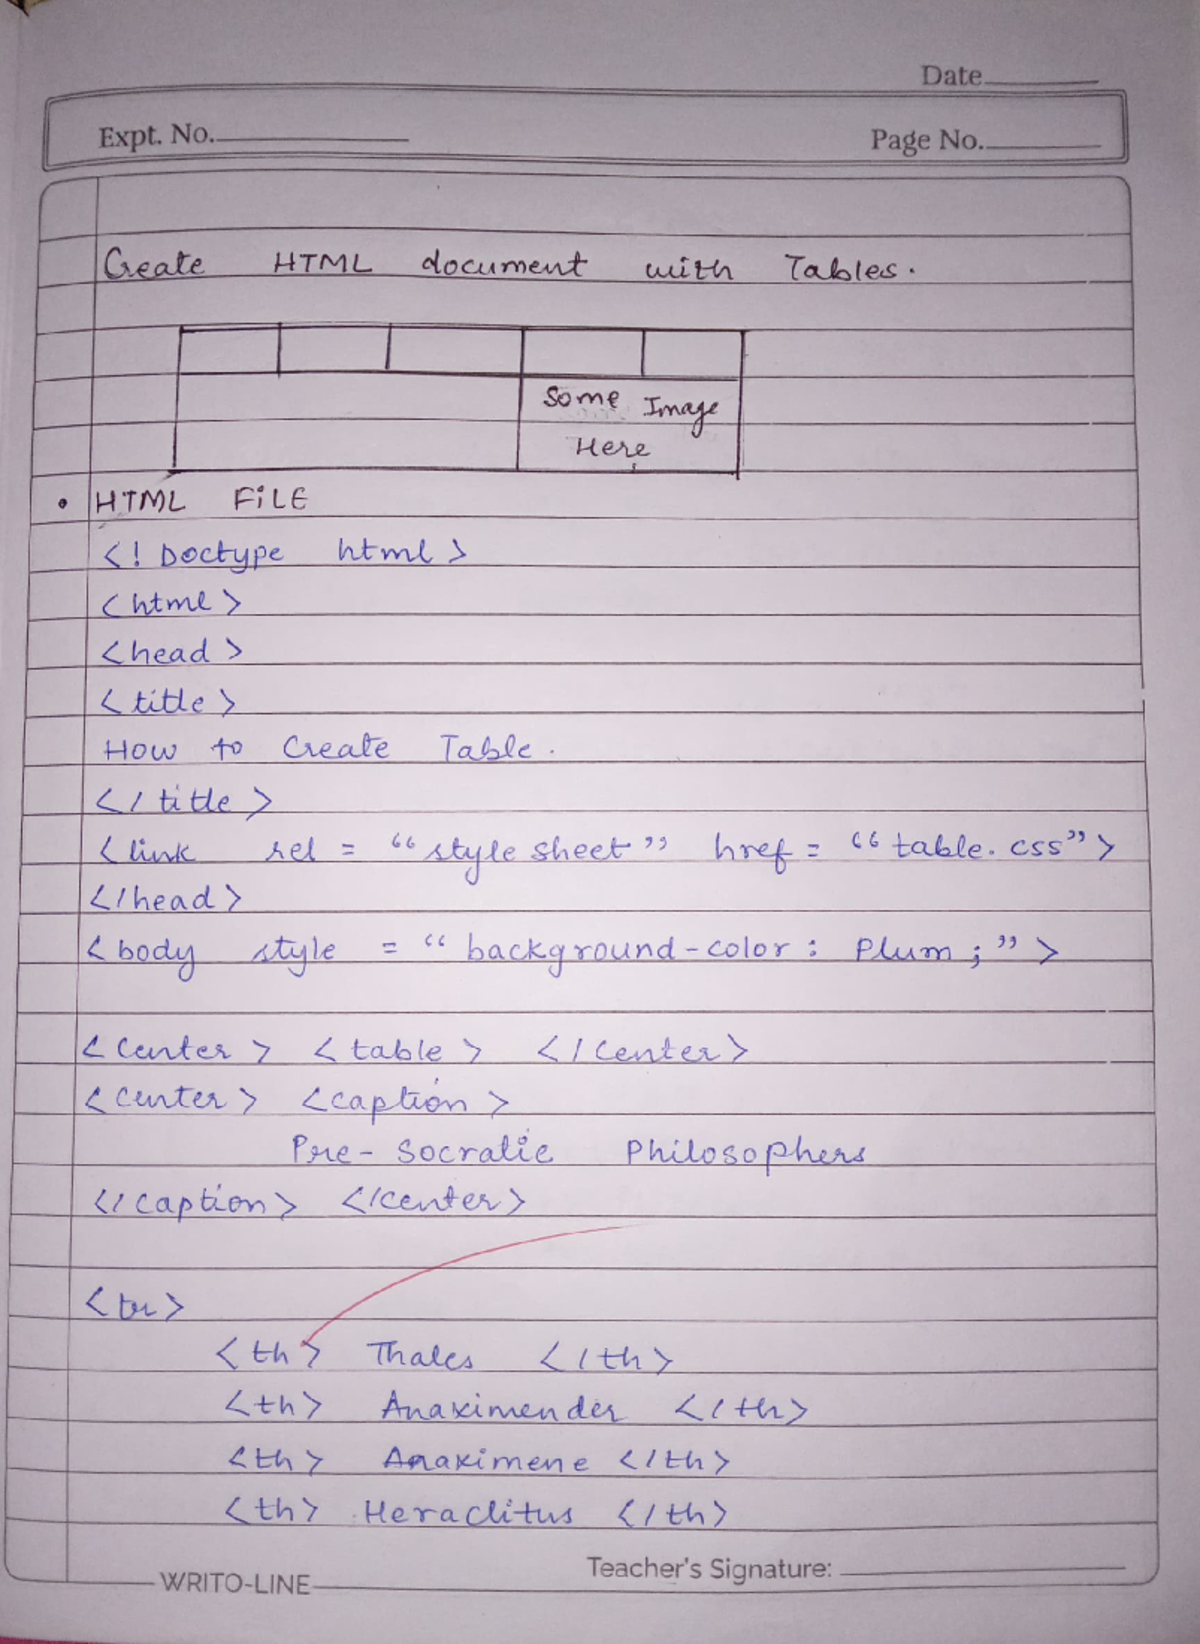 Date
Expt. No.
Page No.
Create HTML document with Tables.
Some Image
Here
• HTML FiLE
<! Doctype html>
<html>
<head>
<title>
How to Create Table.
</title>
<link rel = "style sheet" href = "table.css">
</head>
<body style = "background-color: Plum;">
<center> <table> </center>
<center> <caption>
Pre-Socratic Philosophers
</caption> </center>
<tr>
<th> Thales </th>
<th> Anaximender </th>
<th> Anaximene </th>
<th> Heraclitus </th>
Teacher's Signature:
WRITO-LINE